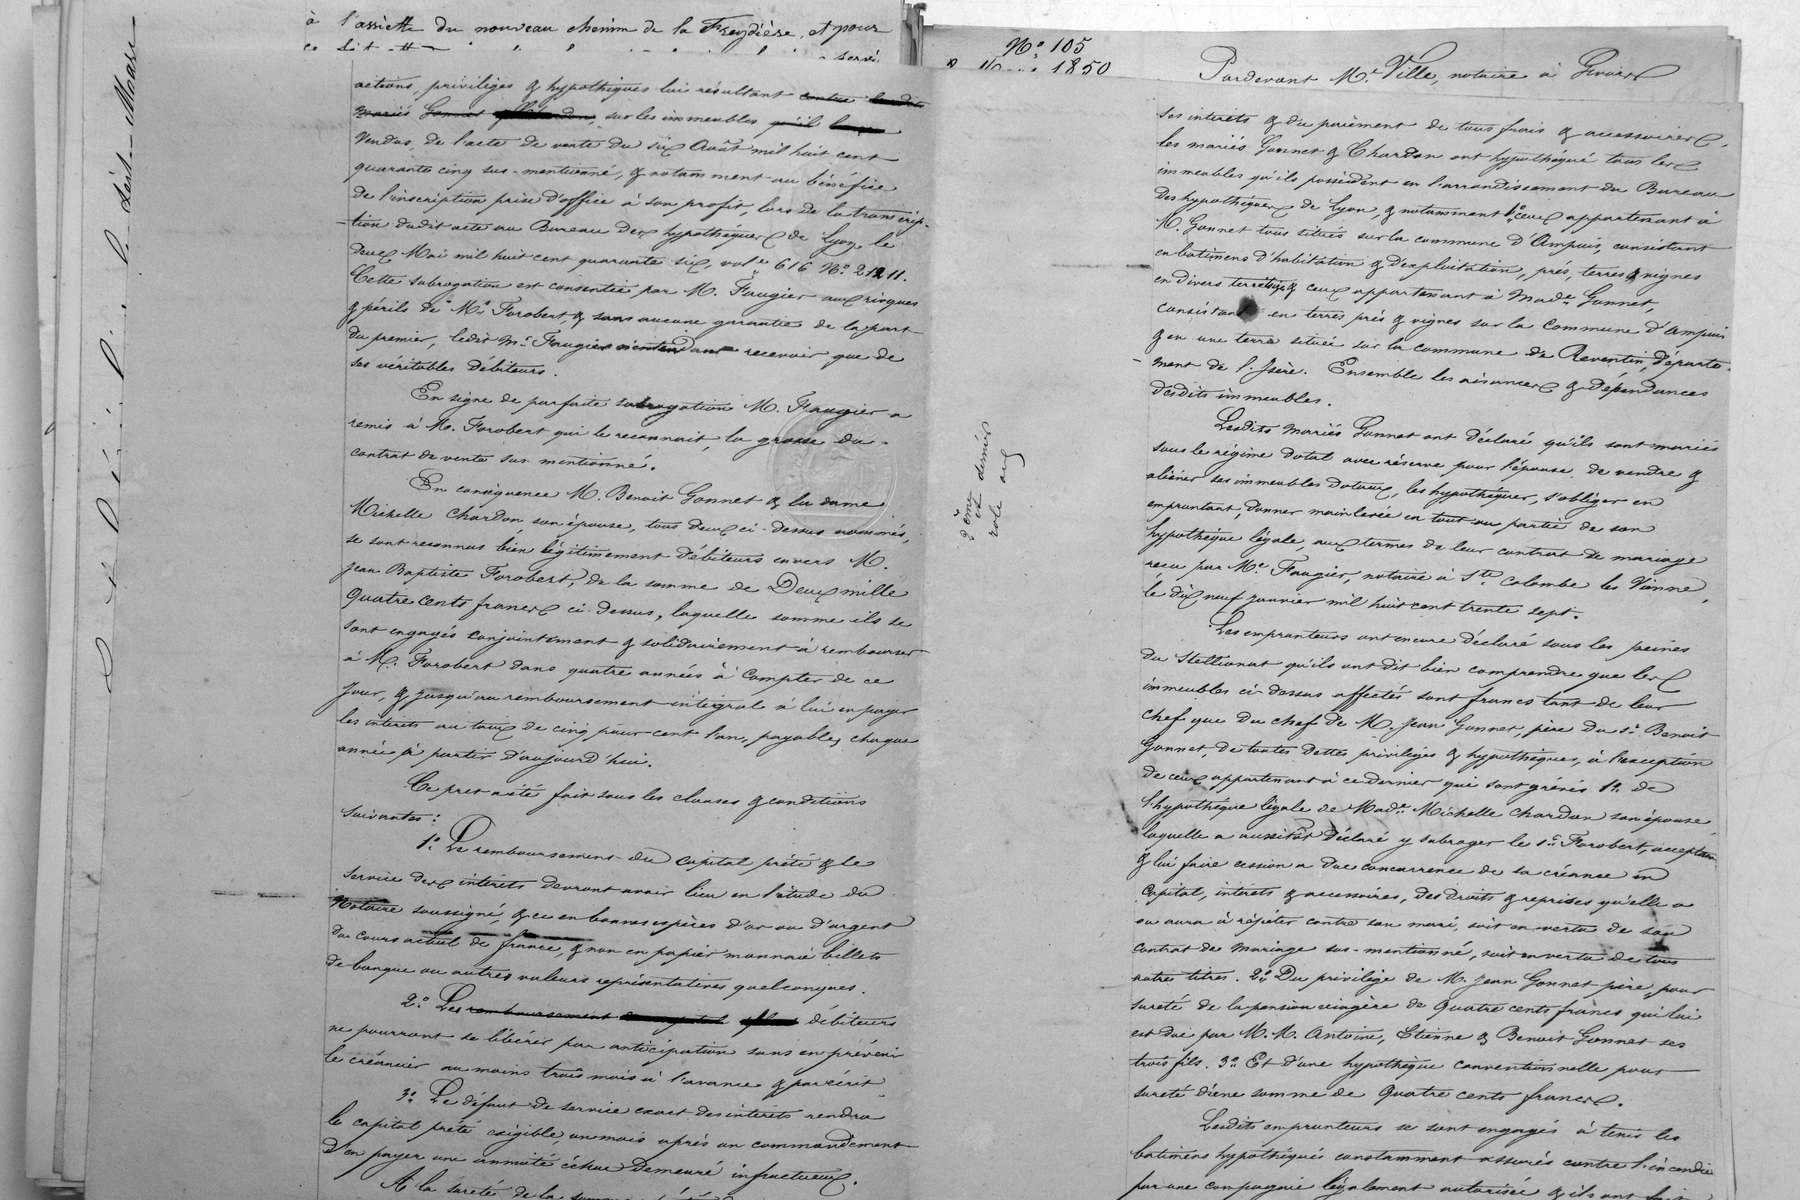 à l'assiette du nouveau chemin de la Freydière, et pour
N° 105
1850
Pardevant Me Ville, notaire à Givors
actions, privilèges & hypothèques lui résultant contre lesdits
mariés Gonnet & Chardon, sur les immeubles qu'il
vendus, de l'acte de vente du six Août mil huit cent
quarante cinq sus-mentionné, & notamment au bénéfice
de l'inscription prise d'office à son profit, lors de la transcrip-
-tion dudit acte au Bureau des hypothèques de Lyon, le
deux Mai mil huit cent quarante six, vol. 616 N°
Cette subrogation est consentie par M. Faugier aux risques
& périls de Mr Forobert, & sans aucune garantie de la part
du premier, ledit Mr Faugier recevoir que de
ses véritables débiteurs.
En signe de parfaite subrogation M. Faugier a
remis à M. Forobert qui le reconnait, la grosse du
contrat de vente sus-mentionné.
En conséquence M. Benoit Gonnet & la dame
Michelle Chardon son épouse, tous deux ci-dessus nommés,
se sont reconnus bien légitimement débiteurs envers M.
Jean Baptiste Forobert, de la somme de Deux mille
quatre cents francs ci-dessus, laquelle somme ils se
sont engagés conjointement & solidairement à rembourser
à M. Forobert dans quatre années à compter de ce
jour, & jusqu'au remboursement intégral à lui en payer
les intérêts au taux de cinq pour cent l'an, payables chaque
année à partir d'aujourd'hui.
Ce prêt a été fait sous les clauses & conditions
suivantes:
1° Le remboursement du capital prêté & le
service des intérêts devront avoir lieu en l'étude du
Notaire soussigné, & ce en bonnes espèces d'or ou d'argent
du cours actuel de france, & non en papier monnaie billets
de banque ou autres valeurs représentatives quelconques.
2° Les remboursement débiteurs
ne pourront se libérer par anticipation sans en prévenir
le créancier au moins trois mois à l'avance & par écrit
3° Le défaut de service exact des intérêts rendra
le capital prêté exigible, un mois après un commandement
d'en payer une annuité échue demeuré infructueux.
A la sureté de la
2ème et dernier
role
ses intérêts & du paiement de tous frais & accessoires,
les mariés Gonnet & Chardon ont hypothéqué tous les
immeubles qu'ils possèdent en l'arrondissement du Bureau
des hypothèques de Lyon, & notamment 1° ceux appartenant à
M. Gonnet tous situés sur la commune d'Ampuis, consistant
en batimens d'habitation & d'exploitation, prés, terres & vignes
en divers & ceux appartenant à Made Gonnet,
consistant en terres prés & vignes sur la commune d'Ampuis
& en une terre située sur la commune de Reventin, départe-
-ment de l'Isère. Ensemble les aisances & dépendances
desdits immeubles.
Lesdits mariés Gonnet ont déclaré qu'ils sont mariés
sous le régime dotal avec réserve pour l'épouse de vendre &
aliéner ses immeubles dotaux, les hypothéquer, s'obliger en
empruntant, donner mainlevée en tout ou partie de son
hypothèque légale, aux termes de leur contrat de mariage
reçu par Me Faugier, notaire à Ste Colombe les Vienne,
le dix neuf janvier mil huit cent trente sept.
Les emprunteurs ont encore déclaré sous les peines
du stellionat qu'ils ont dit bien comprendre que les
immeubles ci-dessus affectés sont francs tant de leur
chef que du chef de M. Jean Gonnet, père du sr Benoit
Gonnet, de toutes dettes privilèges & hypothèques, à l'exception
de ceux appartenant à ce dernier qui sont grévés 1° de
l'hypothèque légale de Made Michelle Chardon son épouse,
laquelle a aussitôt déclaré y subroger le sr Forobert, acceptant
& lui faire cession a due concurrence de sa créance en
capital, intérêts & accessoires, des droits & reprises qu'elle a
ou aura à répéter contre son mari, soit en vertu de son
contrat de mariage sus-mentionné, soit en vertu de tous
autres titres. 2° Du privilège de M. Jean Gonnet père, pour
sureté de la pension viagère de quatre cents francs qui lui
est due par M.M. Antoine, Etienne & Benoit Gonnet ses
trois fils. 3° Et d'une hypothèque conventionnelle pour
sureté d'une somme de quatre cents francs.
Lesdits emprunteurs se sont engagés à tenir les
batimens hypothéqués constamment assurés contre l'incendie
par une compagnie légalement autorisée & ils ont fait